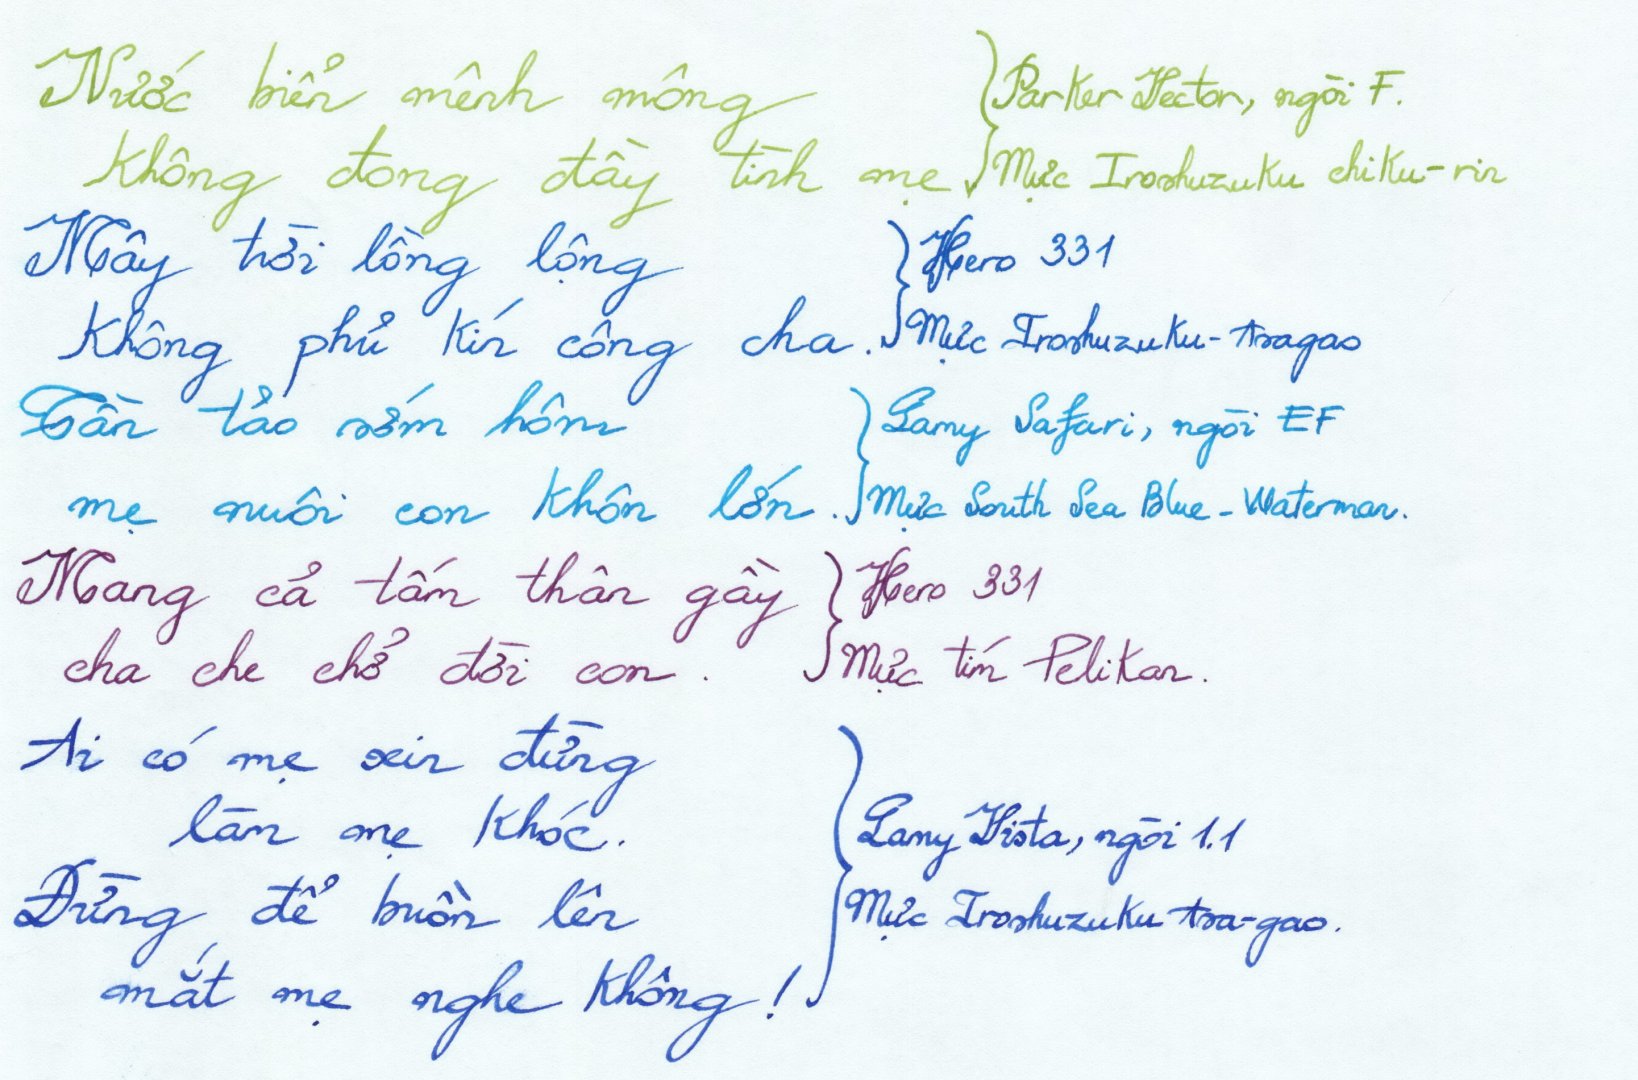 Nước biển mênh mông
Không đong đầy tình mẹ
Parker Vector, ngòi F.
Mực Iroshuzuku chiku-rin
Mây trời lồng lộng
Không phủ kín công cha.
Hero 331
Mực Iroshuzuku-Asagao
Tần tảo sớm hôm
mẹ nuôi con khôn lớn.
Lamy Safari, ngòi EF
Mực South Sea Blue - Waterman.
Mang cả tấm thân gầy
cha che chở đời con.
Hero 331
Mực tím Pelikan.
Ai có mẹ xin đừng
làm mẹ khóc.
Đừng để buồn lên
mắt mẹ nghe không!
Lamy Vista, ngòi 1.1
Mực Iroshuzuku Asa-gao.